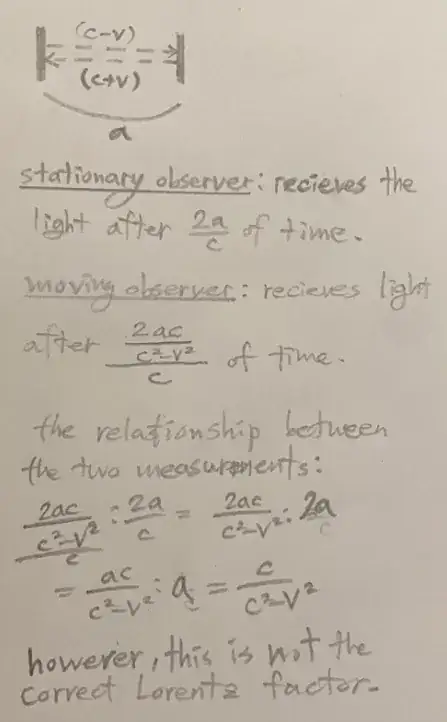 (c-v)
(c+v)
a
stationary observer: recieves the
light after 2a/c of time.
moving observer: recieves light
after (2ac/(c²-v²))/c of time.
the relationship between
the two measurements:
(2ac/(c²-v²))/c : 2a/c = 2ac/(c²-v²) : 2a
= ac/(c²-v²) : a = c/(c²-v²)
however, this is not the
correct Lorentz factor.